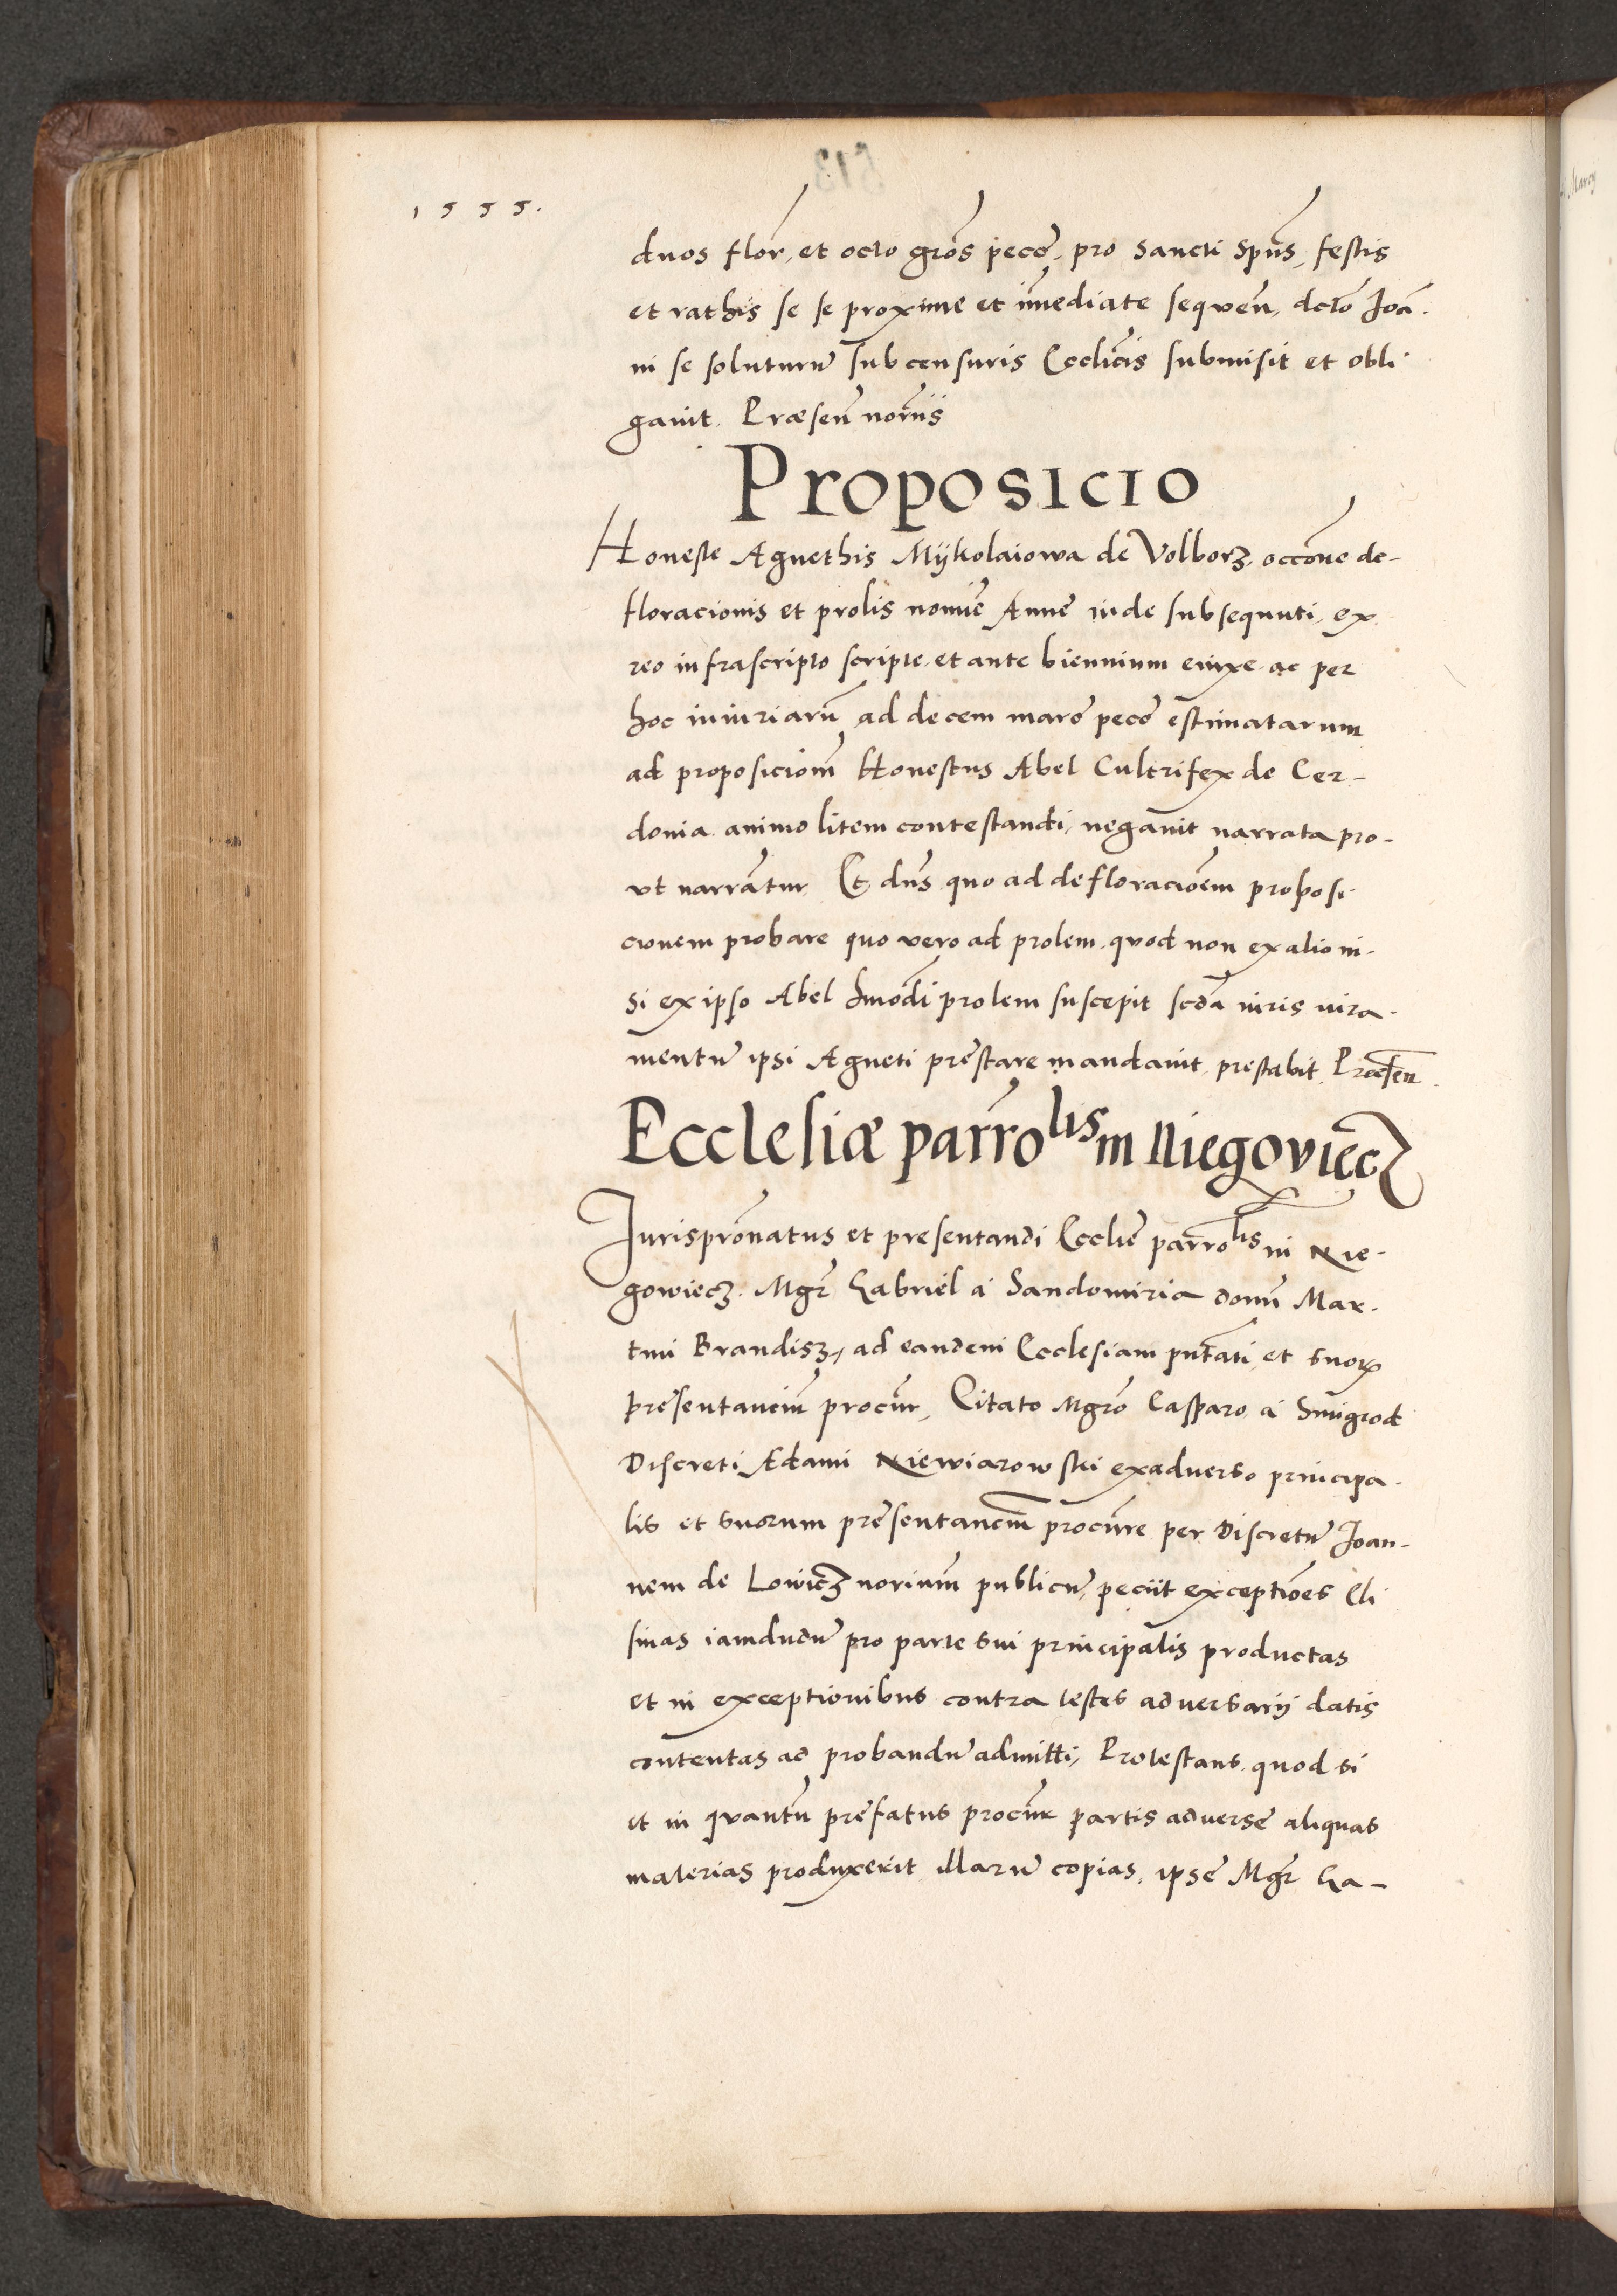 1555.
duos flor, et octo gros pecce, pro sancti Spus, festis
et rathis se se proxime et imediate sequen, dcto Joa.
ni se soluturu sub censuris Ecclicis submisit et obli.
gauit. Præsen noriis
Proposicio
Honeste Agnethis Mykolaiowa de Volborz, occone de-
floracionis et prolis nomie Anne inde subsequuti, ex
reo infrascripto scripte, et ante biennium enixe ac per
hoc iniuriaru ad decem marc pecce estimatarum
ad proposiciom Honestus Abel Cultrifex de Cer-
donia animo litem contestandi, negauit narrata pro-
ut narrantur. Et dns quo ad defloracioem proposi-
cionem probare quo vero ad prolem, quod non ex alio ni-
si ex ipso Abel hmodi prolem suscepit scda iuris iura-
mentu ipsi Agneti prestare mandauit, prestabit. Præsen.
Ecclesiæ parrolis in Niegoviecz
Jurispronatus et presentandi Ecclie parrolis in Nie-
gowiecz. Mgr Gabriel a Sandomiria donn Mar-
tini Brandisz, ad eandem Ecclesiam pntati, et suorum
presentanciu procur, Citato Mgro Casparo a Smigrod
Discreti Adami Niewiarowski ex aduerso principa-
lis et suorum presentancm procure per Discretu Joan-
nem de Lowicz norium publicu, peciit exceptioes Eli
sinas iamdudu pro parte sui principalis productas
et in exceptionibus contra testes aduersarij datis
contentas ad probandu admitti, Protestans quod si
et in quantu prefatus procur partis aduerse aliquas
materias produxerit illaru copias, ipse Mgr Ga-